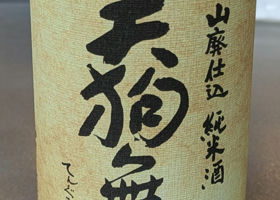 山廃仕込 純米酒
天狗舞
てんぐ